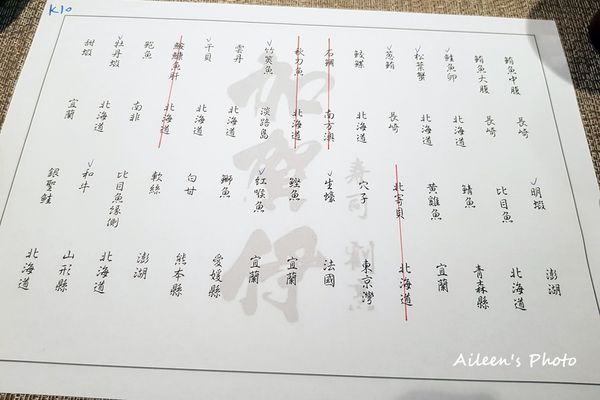 K10
鮪魚中腹 長崎
鮪魚大腹 長崎
鮭魚卵 北海道
松葉蟹 北海道
葱鮪 長崎
鮫鰈 北海道
石鯛 南方澳
秋刀魚 北海道
竹筴魚 淡路島
雲丹 北海道
干貝 北海道
鮟鱇魚肝 北海道
鮑魚 南非
牡丹蝦 北海道
甜蝦 宜蘭
明蝦 澎湖
比目魚 北海道
鯖魚 青森縣
黃雞魚 宜蘭
北寄貝 北海道
穴子 東京灣
生蠔 法國
鰹魚 宜蘭
紅喉魚 宜蘭
鰤魚 愛媛縣
白甘 熊本縣
軟絲 澎湖
比目魚緣側 北海道
和牛 山形縣
銀聖鮭 北海道
加賀
壽司
Aileen's Photo